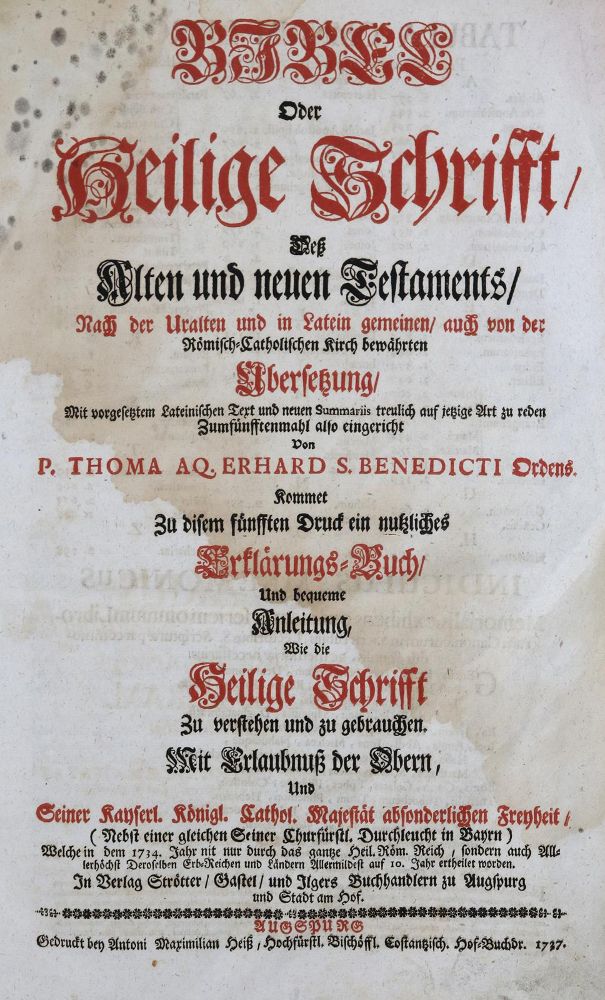 BIBEL
Oder
Heilige Schrifft/
Deß
Alten und neuen Testaments/
Nach der Uralten und in Latein gemeinen/ auch von der
Römisch-Catholischen Kirch bewährten
Ubersetzung/
Mit vorgesetztem Lateinischen Text und neuen Summariis treulich auf jetzige Art zu reden
Zumfünfftenmahl also eingericht
Von
P. THOMA AQ. ERHARD S. BENEDICTI Ordens.
Kommet
Zu disem fünfften Druck ein nutzliches
Erklärungs-Buch/
Und bequeme
Anleitung,
Wie die
Heilige Schrifft
Zu verstehen und zu gebrauchen.
Mit Erlaubnuß der Obern,
Und
Seiner Kayserl. Königl. Cathol. Majestät absonderlichen Freyheit/
( Nebst einer gleichen Seiner Churfürstl. Durchleucht in Bayrn )
Welche in dem 1734. Jahr nit nur durch das gantze Heil. Röm. Reich, sondern auch All-
lerhöchst Deroselben Erb-Reichen und Ländern Allermildest auf 10. Jahr ertheilet worden.
In Verlag Strötter/ Gastel/ und Ilgers Buchhandlern zu Augspurg
und Stadt am Hof.
AUGSPURG
Gedruckt bey Antoni Maximilian Heiß, Hochfürstl. Bischöffl. Costantzisch. Hof-Buchdr. 1737.